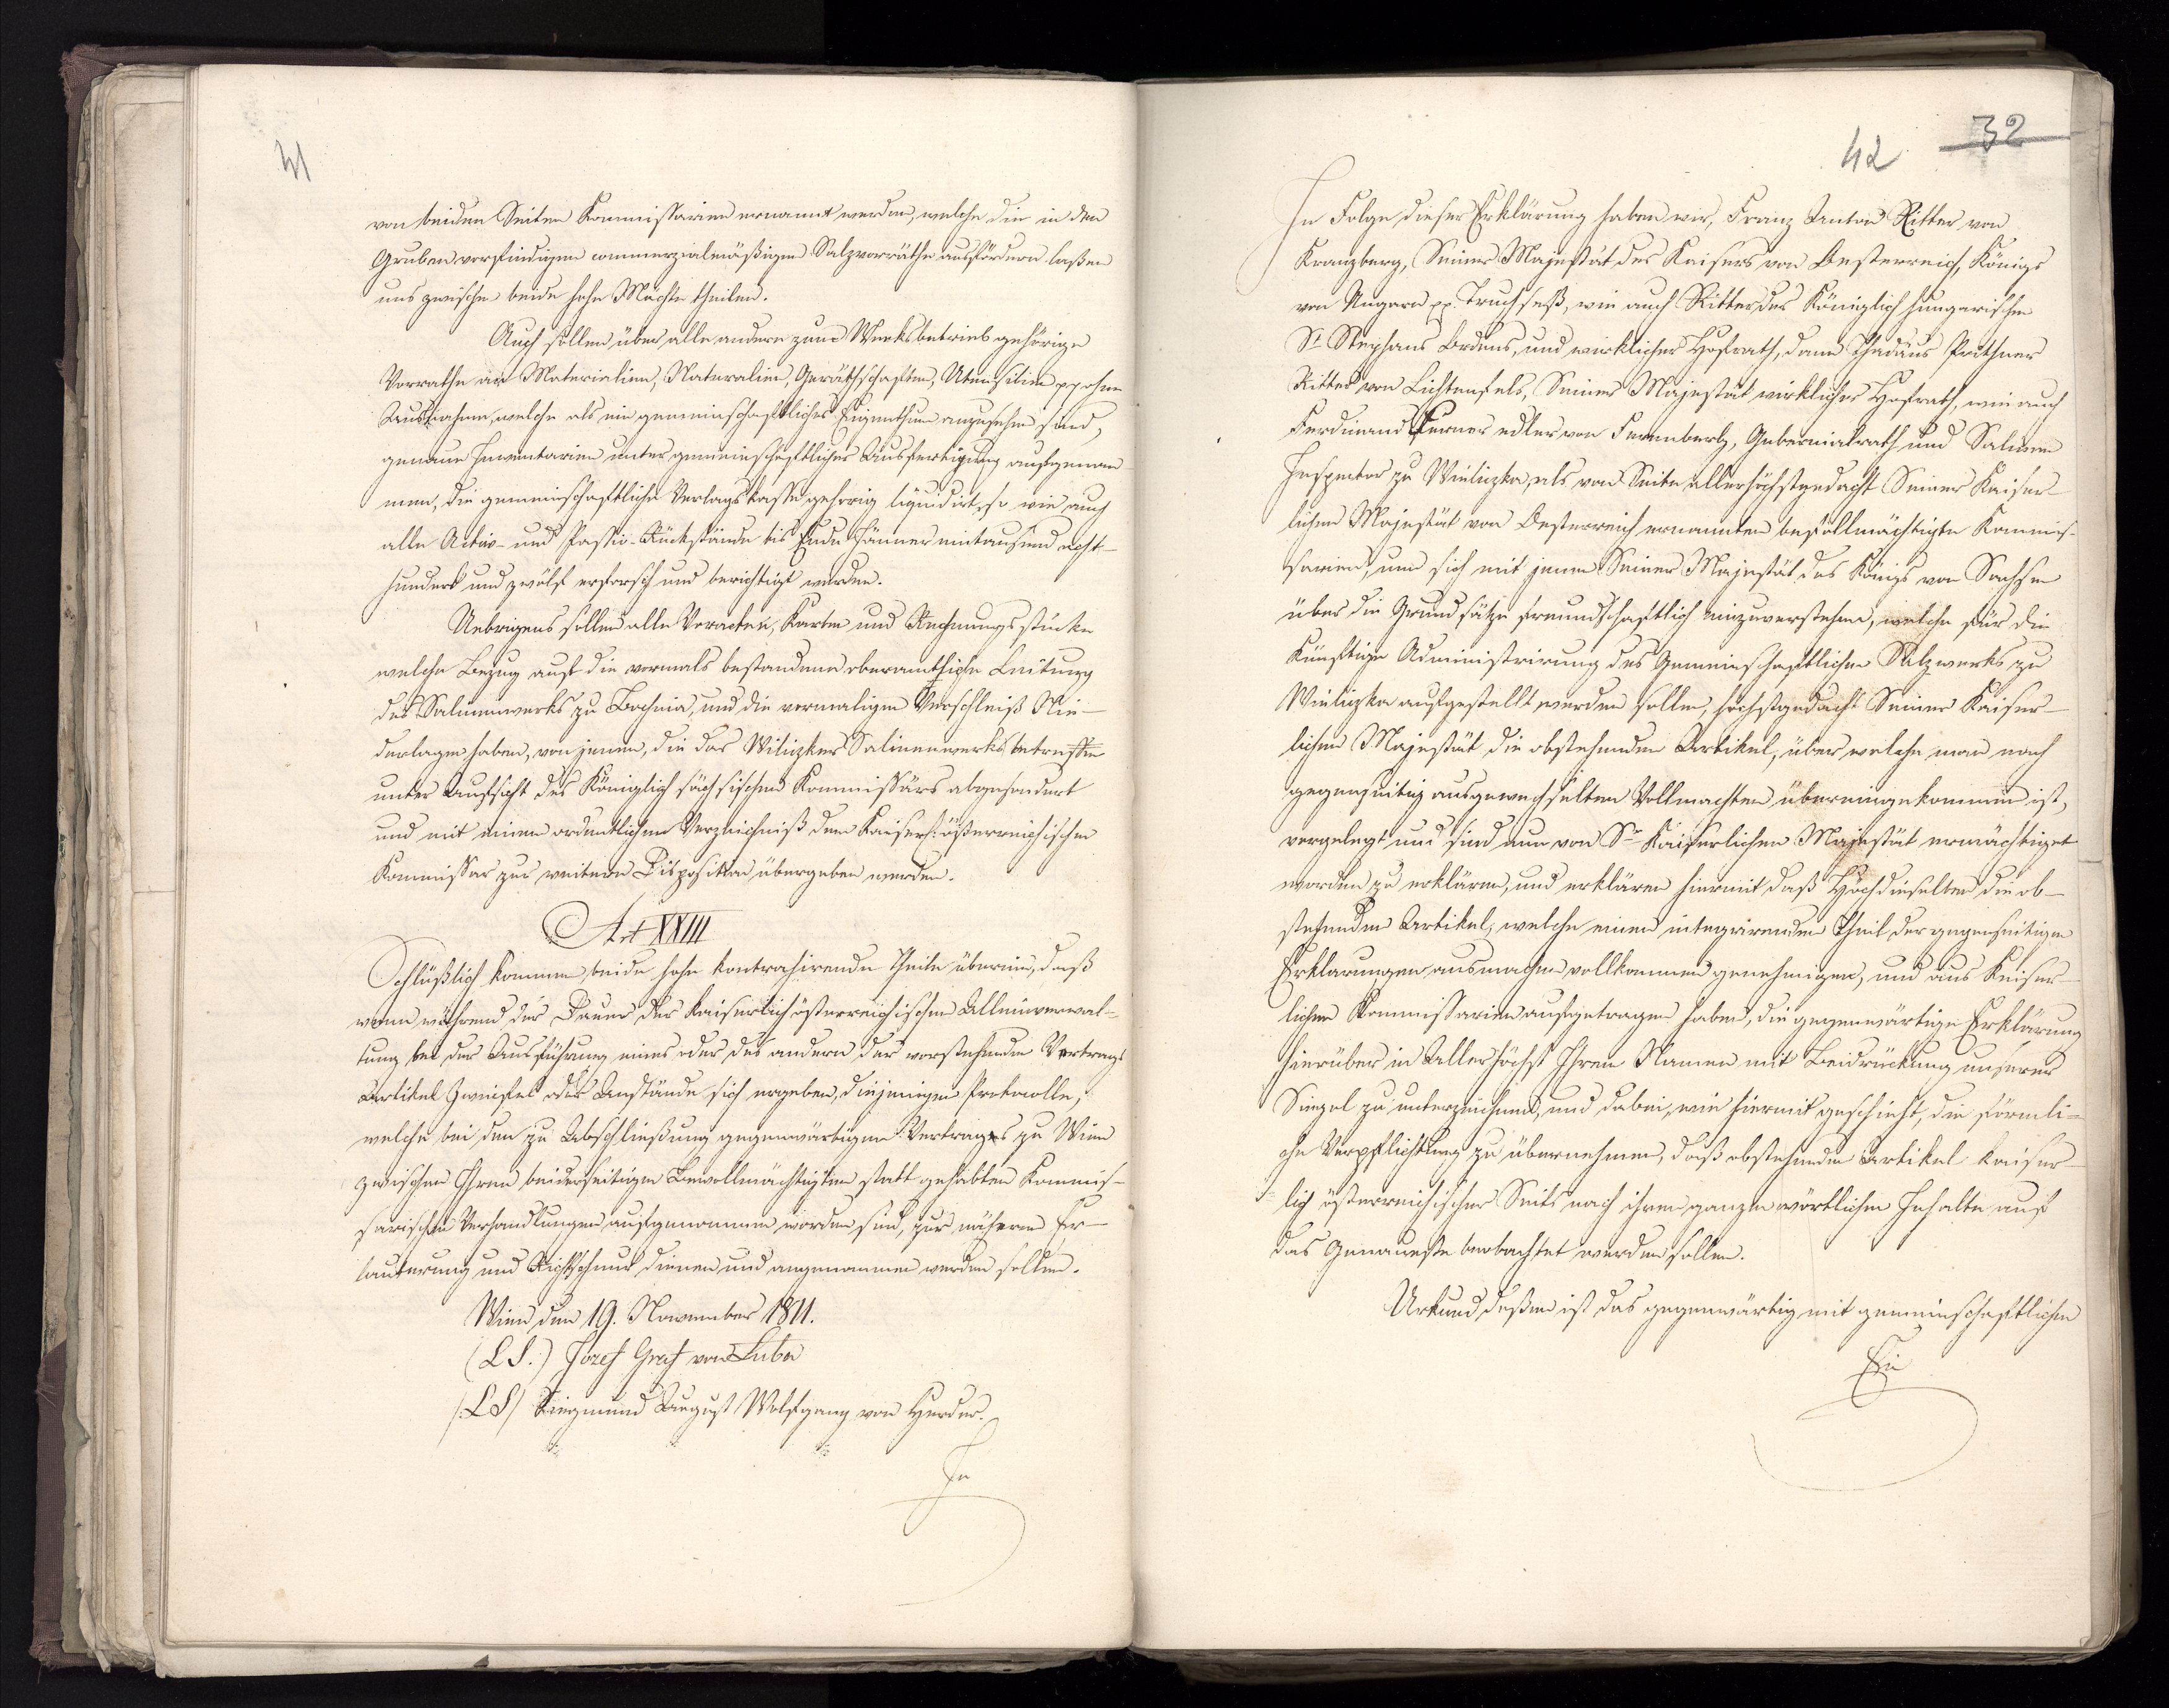 41
von beiden Seiten Kommissarien ernannt werden, welche die in den
Gruben vorfindigen commerzialmäßigen Salzvorräthe ausfördern laßen
uns zwischen beide hohe Mächte theilen.
Auch sollen über alle andere zum Werksbetrieb gehörige
Vorrathe an Materialien, Naturalien, Geräthschaften, Utensilien pp ohne
Ausnahme, welche als ein gemeinschaftliches Eigenthum anzusehen sind,
genaue Inventarien unter gemeinschaftlicher Ausfertigung aufgenom
men, die gemeinschaftliche Verlagskasse gehörig liquidirt, so wie auch
alle Activ- und Passiv-Rückstände bis Ende Jänner eintausend acht-
hundert und zwölf erforscht und berichtigt werden.
Uebrigens sollen alle Voracten, Karten und Rechnungsstücke
welche Bezug auf die vormals bestandene oberamtliche Leitung
des Salinenwerks zu Bochnia, und die vormaligen Verschleiß Nie-
derlagen haben, von jenen, die das Wiliczker Salinenwerks betreffen
unter Aufsicht des Königlich sächsischen Kommissärs abgesondert
und mit einem ordentlichen Verzeichniß dem Kaiserl: österreichischen
Kommissar zur weitern Disposition übergeben werden.
Art XXIII
Schlüßlich kommen beide hohe kontrahirende Theile überein, daß
wenn während der Dauer der Kaiserlich österreichischen Alleinverwal-
tung bei der Ausführung eines oder des andern der vorstehenden Vertrags
Artikel Zweifel oder Anstände sich ergeben, diejenigen Protocolle,
welche bei den zu Abschließung gegenwärtigen Vertrages zu Wien
zwischen Ihren beiderseitigen Bevollmächtigten statt gehabten Kommis-
sarischen Verhandlungen aufgenommen worden sind, zur näheren Er-
lauterung und Richtschnur dienen und angenommen werden sollen.
Wien den 19. November 1811.
(L.S.) Jozef Graf von Luba
(LS) Siegmund August Wolfgang von Herder.
In
42 32
In Folge dieser Erklärung haben wir, Franz Anton Ritter von
Kranzberg, Seiner Majestät des Kaisers von Oesterreich, Königs
von Ungarn pp. Truchseß, wie auch Ritter des Königlich hungarischen
St Stephans Ordens, und wirklicher Hofrath, dann Thadäus Peithner
Ritter von Lichtenfels, Seiner Majestät wirklicher Hofrath, wie auch
Ferdinand edler von Gubernialrath und Salinen
Inspector zu Wieliczka, als von Seite allerhöchstgedacht Seiner Kaiser-
lichen Majestät von Oesterreich ernannten bevollmächtigte Kommis-
sarien, um sich mit jenen Seiner Majestät des Königs von Sachsen
über die Grundsätze freundschaftlich einzuverstehen, welche für die
Künftige Administrirung des Gemeinschaftlichen Salzwerks zu
Wieliczka aufgestellt werden sollen, höchstgedacht Seiner Kaiser-
lichen Majestät die obstehenden Artikel, über welche man nach
gegenseitig ausgewechselten Vollmachten übereingekommen ist,
vorgelegt und sind nun von Sr Kaiserlichen Majestät ermächtiget
worden zu erklären, und erklären hiermit daß Höchdieselben die ob-
stehenden Artikel, welche einen integrirenden Theil der gegenseitigen
Erklarungen ausmachen vollkommen genehmigen, und aus Kaiser-
lichen Kommissarien aufgetragen haben, die gegenwärtige Erklärung
hierüber in Allerhöchst Ihren Namen mit Beidrückung unserer
Siegel zu unterzeichnen, und dabei, wie hiermit geschieht, die förmli-
che Verpflichtung zu übernehmen, daß obstehende Artikel kaiser-
lich österreichischer Seits nach ihrem ganzen wörtlichen Inhalte auf
das Genaueste beobachtet werden sollen.
Urkund deßen ist das gegenwärtig mit gemeinschaftlichen
Ein